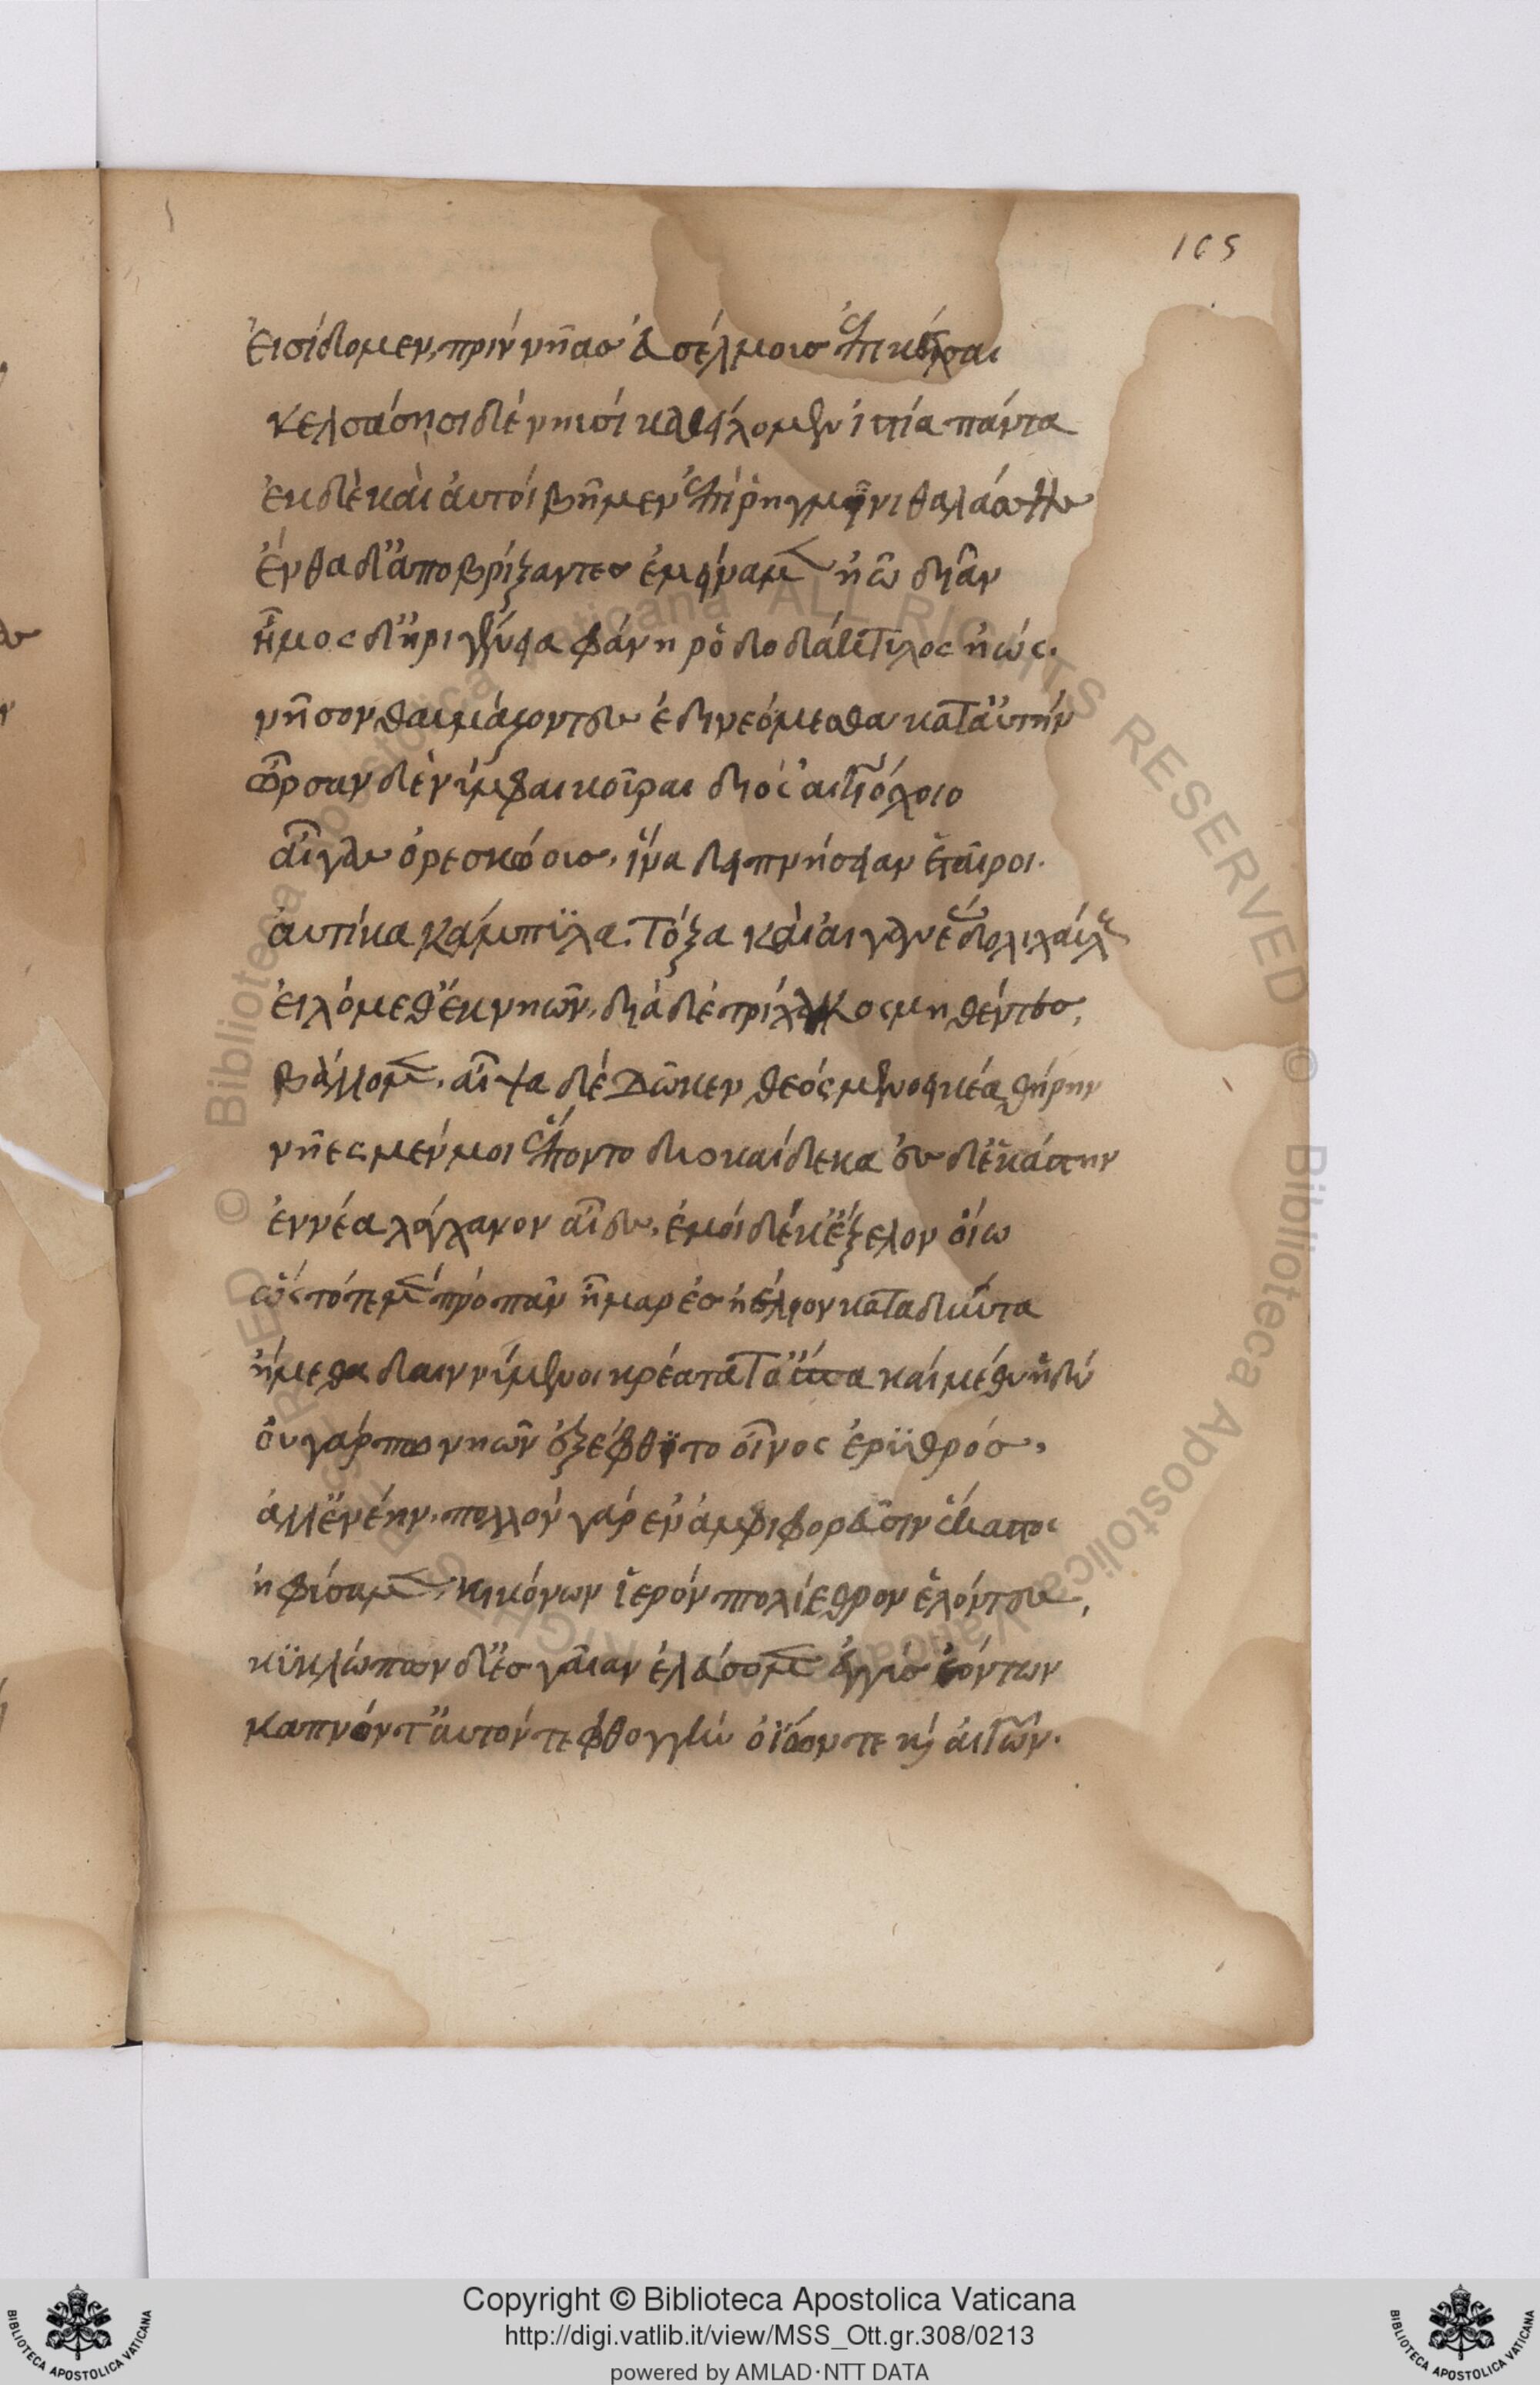 165
ἐισίδομεν, πρίν νῆας ἐυσέλμους ἐπικέλσαι
κελσάσησι δέ νηυσί καθείλομεν ἱστία πάντα
ἐκ δὲ καὶ ἀυτοί βῆμεν ἐπί ῥηγμῖνι θαλάσσης
ἔνθα δ' ἀποβρίξαντες ἐμείναμεν ἠῶ δῖαν
ἦμος δ' ἠριγένεια φάνη ῥοδοδάκτυλος ἠώς.
νῆσον θαυμάζοντες ἐδινεόμεσθα κατ' αὐτήν
ὦρσαν δὲ νύμφαι κοῦραι διός αἰγιόχοιο
αἶγας ὀρεσκώους, ἵνα δειπνήσειαν ἑταῖροι.
ἀυτίκα καμπύλα τόξα καὶ αἰγανέας δολιχαύλους
εἱλόμεθ' ἐκ νηῶν, διὰ δέ τρίχα κοσμηθέντες,
βάλλομεν. αἶψα δέ δῶκεν θεός μενοεικέα θήρην
νῆες μέν μοι ἕποντο δυοκαίδεκα ἐς δὲ ἑκάστην
ἐννέα λάγχανον αἶγες, ἐμοί δέ δέκ' ἔξελον οἴω
ὥς τότε μέν πρόπαν ἦμαρ ἐς ἠέλιον καταδύντα
ἥμεθα δαινύμενοι κρέατά τ' ἄσπετα καί μέθυ ἡδύ
οὐ γάρ πω νηῶν ἐξέφθιτο οἶνος ἐρυθρός,
ἀλλ' ἐνέην, πολλόν γάρ ἐν ἀμφιφορεῦσιν ἕκαστοι
ἠφύσαμεν, κικόνων ἱερόν πτολίεθρον ἑλόντες,
κυκλώπων δ' ἐς γαῖαν ἐλεύσσομεν ἐγγύς ἐόντων
καπνόν τ' ἀυτόν τε φθογγήν ὀΐων τε καὶ αἰγῶν.
Copyright © Biblioteca Apostolica Vaticana
http://digi.vatlib.it/view/MSS_Ott.gr.308/0213
powered by AMLAD·NTT DATA